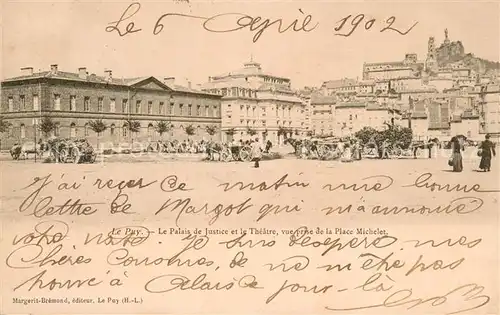 Le 6 Avril 1902
J'ai reçu ce matin une bonne
lettre de Margot qui m'annonce
Le Puy. — Le Palais de Justice et le Théâtre, vue prise de la Place Michelet.
votre Je suis désespéré mes
chères cousines, de ne m'être pas
trouvé à Calais ce jour-là
Margerit-Brémond, éditeur, Le Puy (H.-L.)